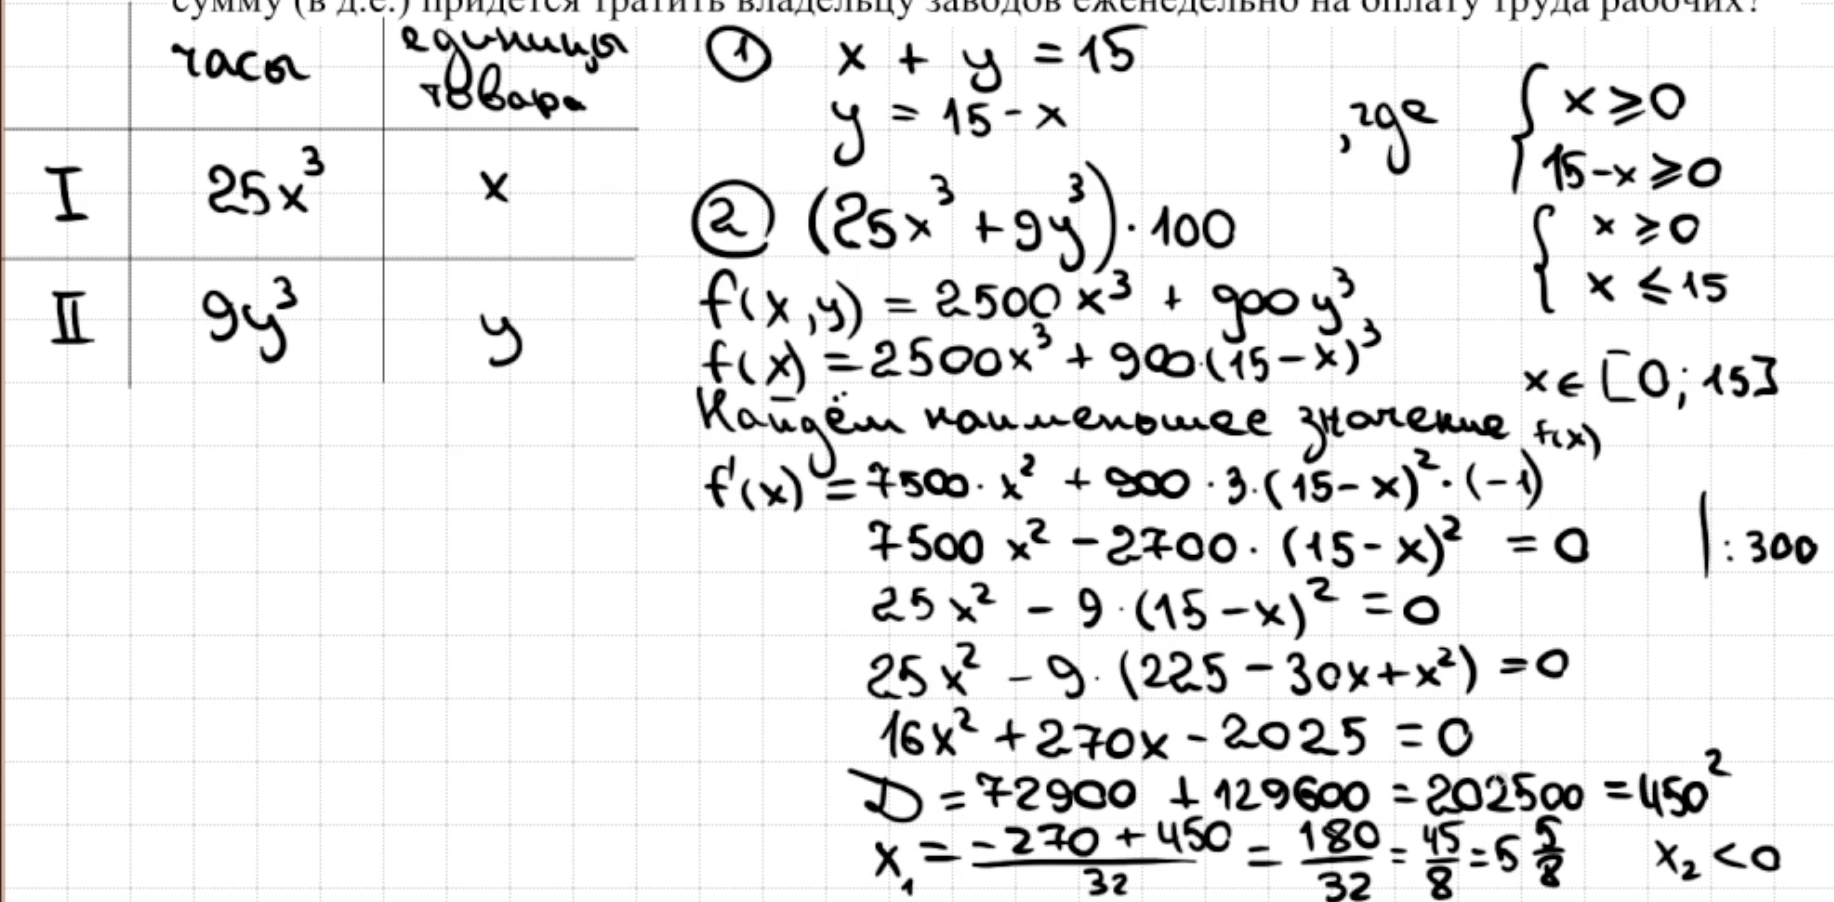 сумму (в д.е.) придется тратить владельцу заводов еженедельно на оплату труда рабочих?
часы единицы товара
I 25x³ x
II 9y³ y
① x + y = 15
y = 15 - x
, где { x ⩾ 0
15-x ⩾ 0
{ x ⩾ 0
x ≤ 15
x ∈ [0; 15]
② (25x³ + 9y³) · 100
f(x,y) = 2500x³ + 900y³
f(x) = 2500x³ + 900·(15-x)³
Найдём наименьшее значение f(x)
f'(x) = 7500·x² + 900·3·(15-x)²·(-1)
7500x² - 2700·(15-x)² = 0 |:300
25x² - 9·(15-x)² = 0
25x² - 9·(225-30x+x²) = 0
16x² + 270x - 2025 = 0
D = 72900 + 129600 = 202500 = 450²
x₁ = (-270 + 450)/32 = 180/32 = 45/8 = 5 5/8 x₂ < 0